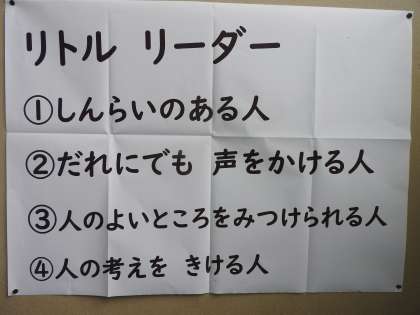 リトル リーダー
①しんらいのある人
②だれにでも 声をかける人
③人のよいところをみつけられる人
④人の考えを きける人